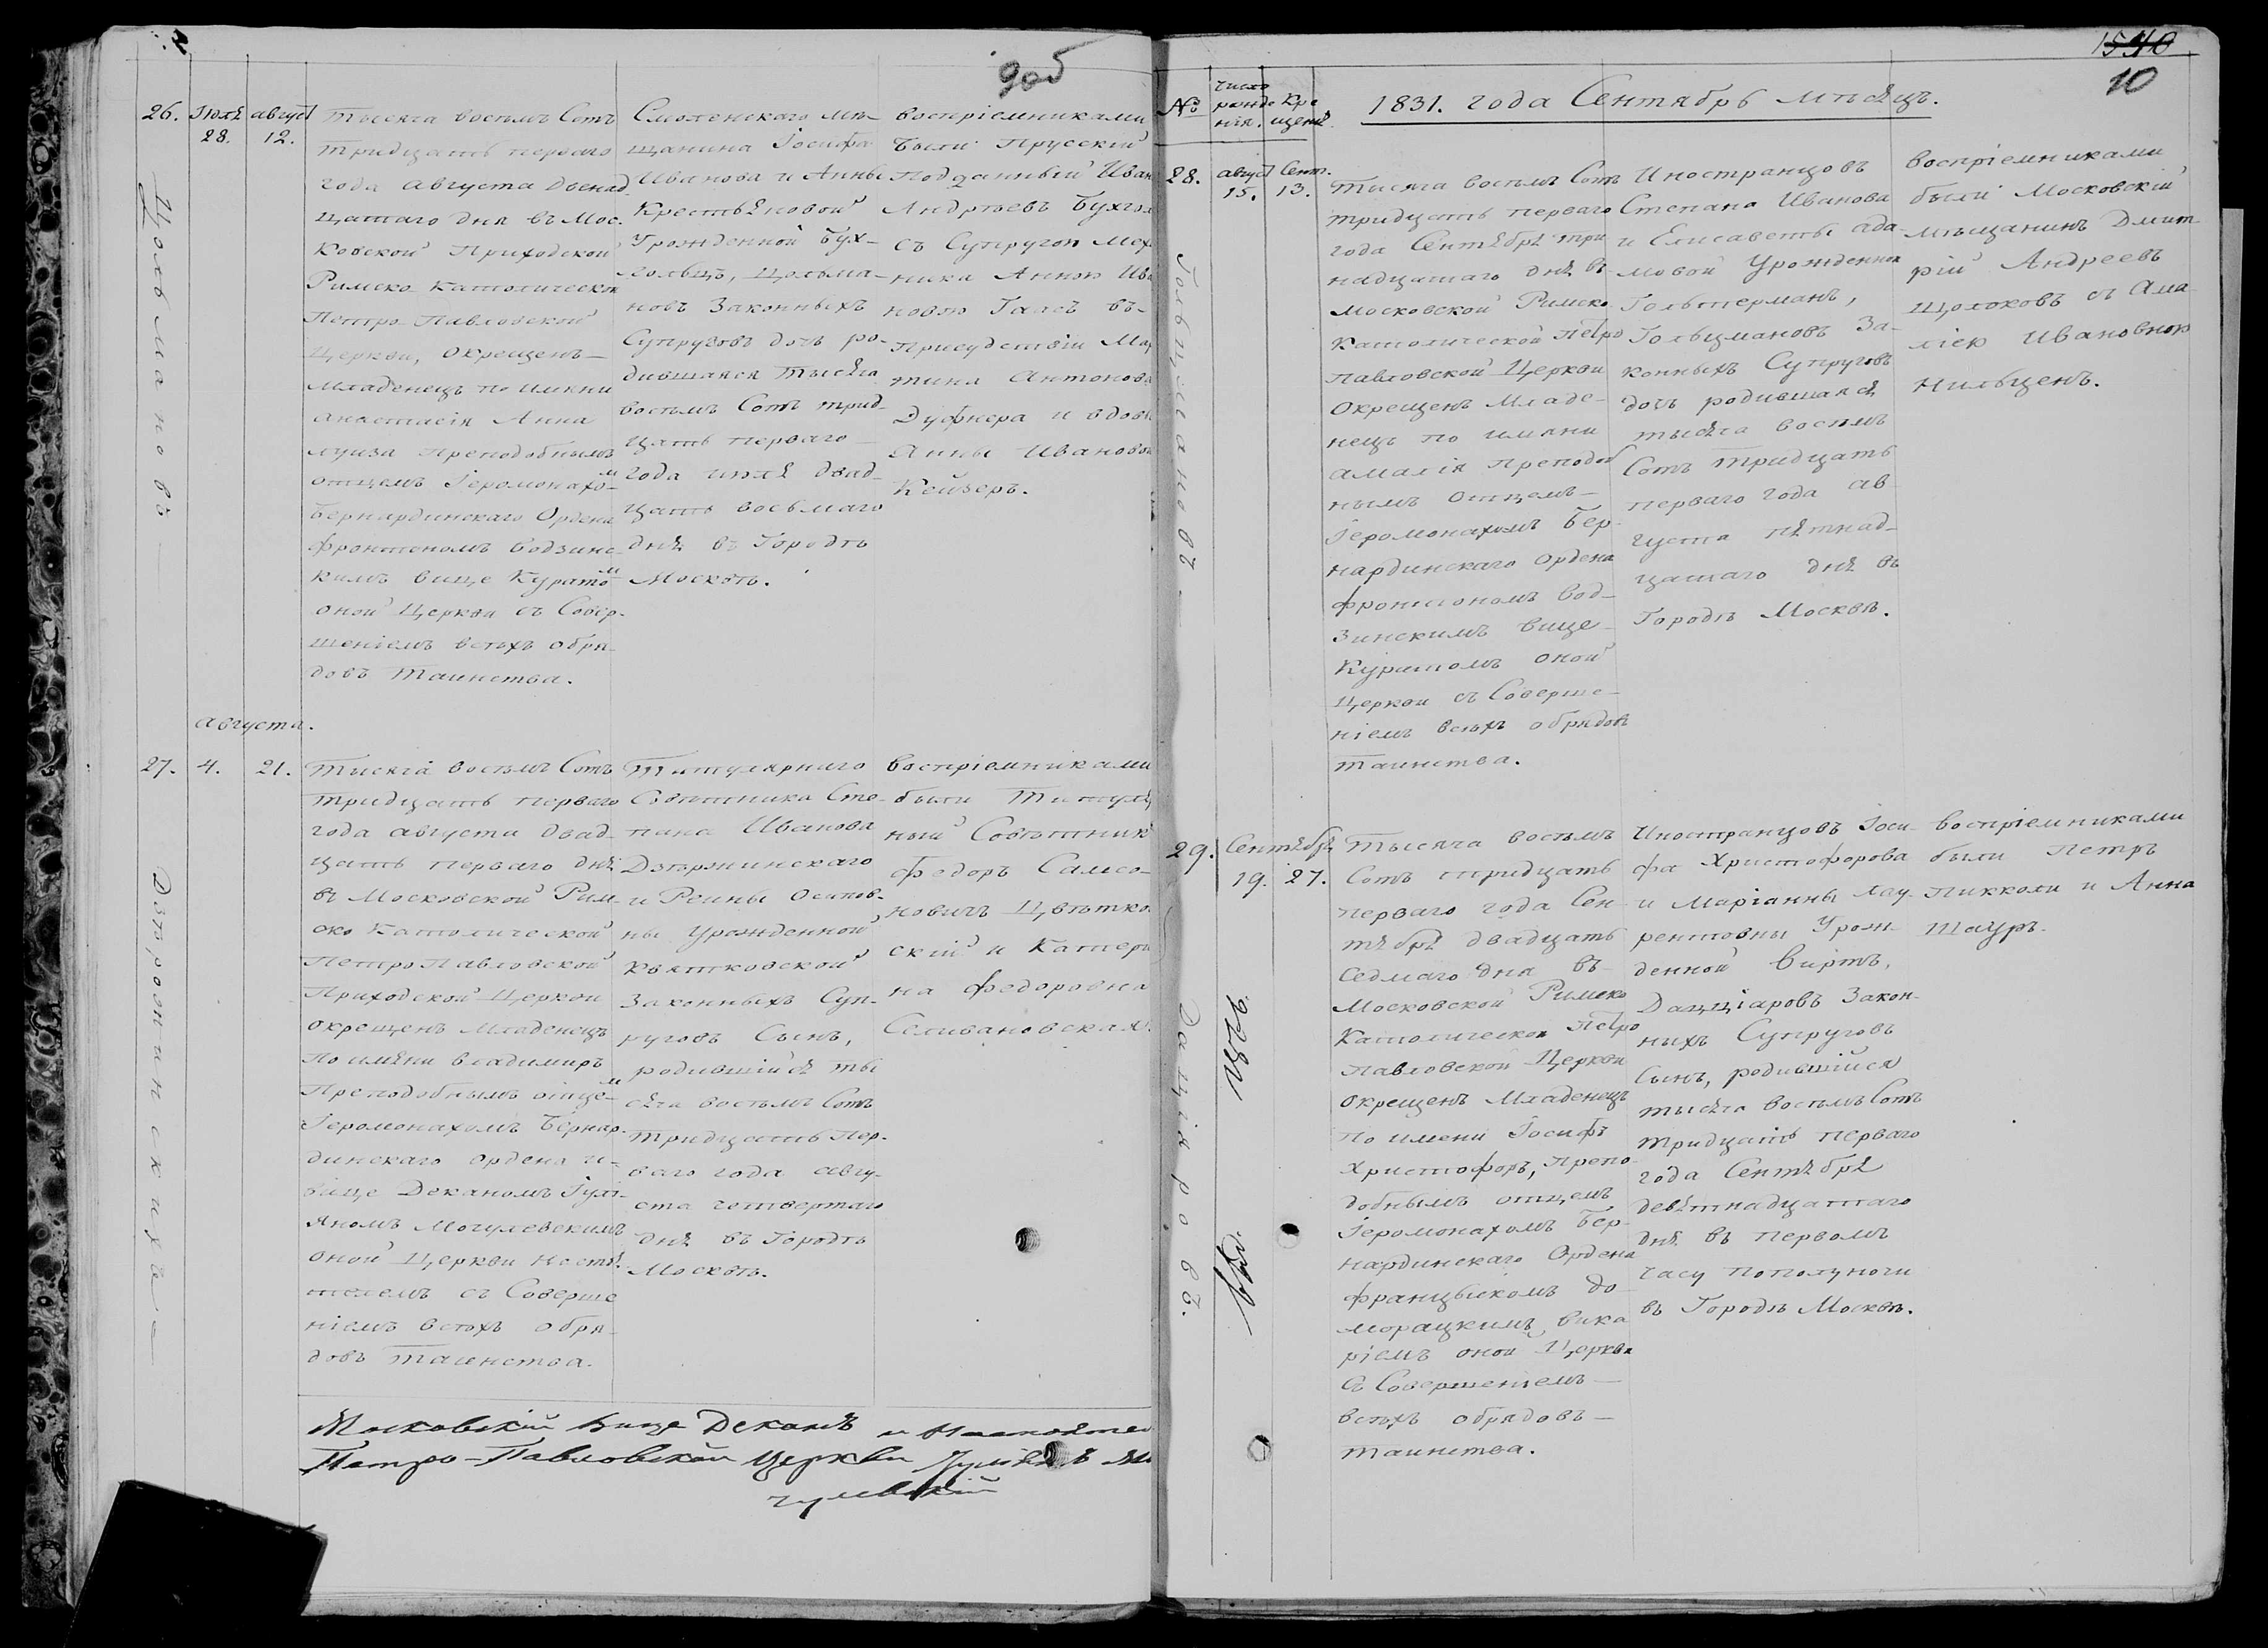 9 об
26.
Июля
28.
август
12.
Цольмановъ
Тысяча восемь Сотъ
тридцать перваго
года Августа двенад
цатаго дня въ Мос-
ковской Приходской
Римско Католической
Петро-Павловской
Церкви, окрещенъ
младенецъ по имяни
Анастасія Анна
Луиза Преподобнымъ
отцемъ Іеромонахомъ
Бернардинскаго Ордена
Фронтономъ Водзинс-
кимъ вице Куратомъ
оной Церкви съ Совер-
шеніемъ всѣхъ обря-
довъ Таинства.
Смоленскаго мѣ-
щанина Іосифа
Иванова и Анны
Крестьяновой
Урожденной Бух-
гольцъ, Цольма-
новъ Законныхъ
Супруговъ дочь ро-
дившаяся тысяча
восемь Сотъ трид-
цать перваго
года июля двад-
цать восьмаго
дня въ Городѣ
Москвѣ.
воспріемниками
были Прусскій
Подданный Иван
Андреевъ Бухгол
съ Супругою Меха
ника Анною Ива
новою Гаасъ въ
Присудствіи Мар
тина Антонова
Дуфнера и вдовы
Анны Ивановой
Кейзеръ.
августа.
27.
4.
21.
Дзѣржинскихъ
Тысяча восемь Сотъ
тридцать перваго
года августа двад-
цать перваго дня
въ Московской Рим-
ско Католической
Петро Павловской
Приходской Церкви
окрещенъ младенецъ
по имяни Владимиръ
Преподобнымъ отцемъ
Іеромонахомъ Бернар-
динскаго ордена и
вице Деканомъ Іулі-
яномъ Могулевскимъ
оной Церкви Настоя-
телемъ съ Соверше
ніемъ всѣхъ обря-
довъ Таинства.
Титулярнаго
Совѣтника Сте-
пана Иванова
Дзѣржинскаго
и Реины Осипов-
ны Урожденной
Квятковской
Законныхъ Суп-
руговъ Сынъ,
родившійся ты
сяча восемь Сотъ
тридцать пер-
ваго года авгу-
ста четвертаго
дня въ Городѣ
Москвѣ.
воспріемниками
были Титуляр
ный Совѣтникъ
Федоръ Самсо-
новичъ Цвѣтков
скій и Катери
на Федоровна
Селивановская.
Московскій Вице Деканъ и Настоятел
Петро-Павловской Церкви Іуліянъ Мо
гулевскій
1540
10
№
число
рожде
нія.
Кре
щенія.
1831. года Сентябрь мѣсяцъ.
28.
август
15.
Сент.
13.
Гольцмановъ
Тысяча восемь Сотъ
тридцать перваго
года Сентября три
надцатаго дня въ
Московской Римско
Католической Петро
Павловской Церкви
Окрещенъ Младе-
нецъ по имяни
Амалія Преподоб
нымъ Отцемъ
Іеромонахомъ Бер-
нардинскаго Ордена
Фронтономъ Вод-
зинскимъ вице
Куратомъ оной
Церкви съ Соверше-
ніемъ всѣхъ обрядовъ
таинства.
Иностранцовъ
Степана Иванова
и Елисаветы Ада-
мовой Урожденной
Гольтерманъ,
Гольцмановъ За-
конныхъ Супруговъ
дочь родившаяся
тысяча восемь
Сотъ тридцать
перваго года ав
густа пятнад-
цатаго дня въ
Городѣ Москвѣ.
воспріемниками
были Московскій
мѣщанинъ Дмит-
рій Андреевъ
Щолоковъ съ Ама-
ліею Ивановною
Нильценъ.
29.
Сентября
19.
27.
Даціяровъ.
Тысяча восемь
Сотъ тридцать
перваго года Сен-
тября двадцать
седмаго дня въ
Московской Римско
Католической Петро
Павловской Церкви
окрещенъ Младенецъ
по имени Іосифъ
Христофоръ, препо-
добнымъ отцемъ
Іеромонахомъ Бер-
нардинскаго Ордена
Францыскомъ До-
морацкимъ вика
ріемъ оной Церкви
съ Совершеніемъ
всѣхъ обрядовъ
таинства.
Иностранцовъ Іоси-
фа Христофорова
и Маріанны Лау-
рентовны Урож-
денной Виртъ,
Дацціаровъ Закон-
ныхъ Супруговъ
Сынъ, родившійся
тысяча восемь Сотъ
тридцать перваго
года Сентября
девятнадцатаго
дня въ первомъ
часу пополуночи
въ Городѣ Москвѣ.
воспріемниками
были Петръ
Пикколи и Анна
Шауръ.